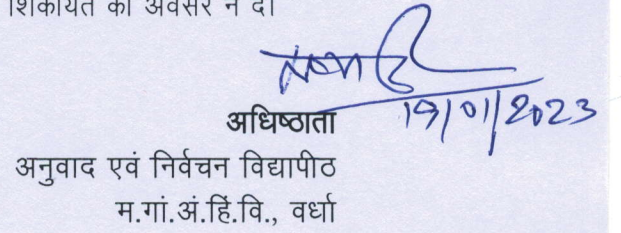 शिकायत का अवसर न दें।
19/01/2023
अधिष्ठाता
अनुवाद एवं निर्वचन विद्यापीठ
म.गां.अं.हिं.वि., वर्धा